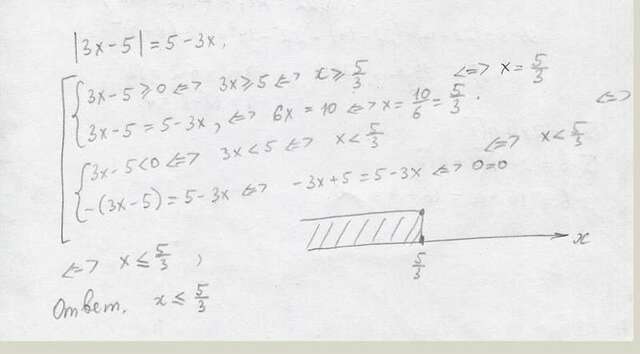 |3x-5|=5-3x,
3x-5⩾0 <=> 3x⩾5 <=> x⩾5/3 <=> x=5/3
3x-5=5-3x, <=> 6x=10 <=> x=10/6=5/3. <=>
3x-5<0 <=> 3x<5 <=> x<5/3 <=> x<5/3
-(3x-5)=5-3x <=> -3x+5=5-3x <=> 0=0
x
5/3
<=> x≤5/3,
Ответ. x≤5/3